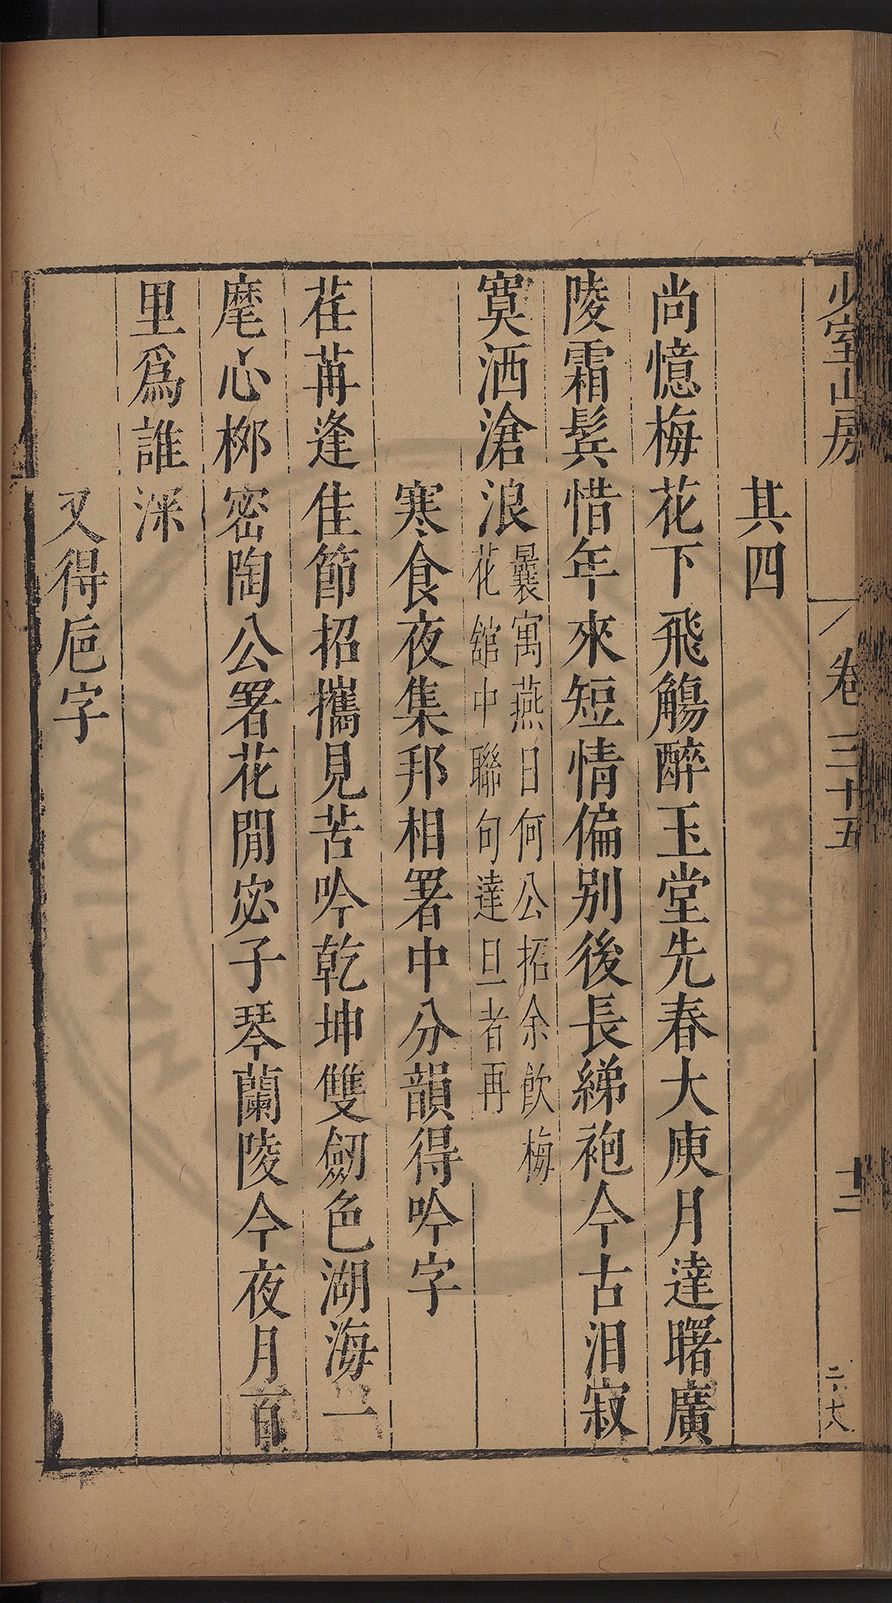 少室山房
卷三十五
十二
二十八
其四
尚憶梅花下飛觴醉玉堂先春大庾月達曙廣
陵霜鬂惜年來短情偏别後長綈袍今古泪寂
寞洒滄浪
曩寓燕日何公招余飲梅
花舘中聯句達旦者再
寒食夜集邦相署中分韻得吟字
荏苒逢佳節招攜見苦吟乾坤雙劒色湖海一
麾心桺密陶公署花閒宓子琴蘭陵今夜月百
里爲誰深
又得巵字